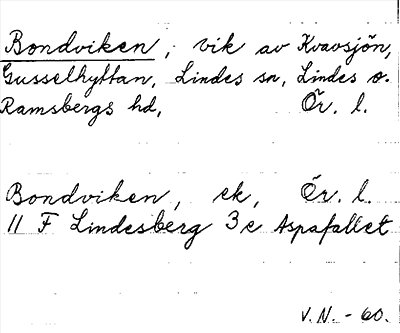 Bondviken, vik av Kvavsjön,
Gusselhyttan, Lindes sn, Lindes o.
Ramsbergs hd, Ör. l.
Bondviken, ek, Ör. l.
11 F Lindesberg 3c Aspafallet
V.N. - 60.